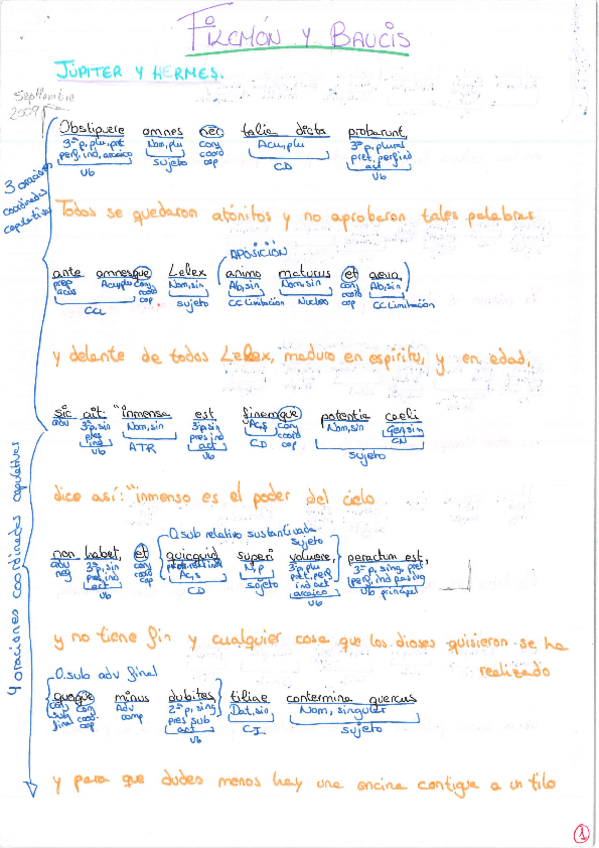 FILEMÓN Y BAUCIS
JÚPITER Y HERMES.
Septiembre
2009
Obstipuere omnes nec talia dicta probarunt,
3ªp, plu, pret Nom, plu conj Acu, plu 3ªp, plural
perf, ind, arcaico sujeto coord CD pret, perf ind
Vb cop act
Vb
3 oraciones
coordinadas
copulativas
Todos se quedaron atónitos y no aprobaron tales palabras
APOSICIÓN
ante omnesque Lelex (animo maturus et aevo,)
prep Acu, plu conj Nom, sin Ab, sin Nom, sin conj Ab, sin
acus coord sujeto CC Limitación Núcleo coord CC Limitación
CCL cop cop
y delante de todos Lelex, maduro en espíritu, y en edad,
sic ait: "inmensa est finemque potentia caeli
adv 3ªp, sin Nom, sin 3ªp sin Ac, s conj Nom, sin Gen, sin
pres ATR pres ind CD coord CN
ind act cop sujeto
Vb Vb
dice así: "inmenso es el poder del cielo
4 oraciones coordinadas copulativas
O.sub relativo sustantivada
sujeto
non habet, et quicquid superi voluere, peractum est,
adv 3ªp, sin conj N, p 3ªp, plu 3ªp, sing, pret
neg pres, ind coord Ac, s sujeto pret, perf, perf, ind pasiva
act cop CD ind act Vb principal
Vb arcaico
Vb
y no tiene fin y cualquier cosa que los dioses quisieron se ha
realizado
O.sub adv final
quoque minus dubites, tiliae contermina quercus
conj conj Adv 2ªp, sing Dat, sin Nom, singular
sub coord comp pres sub CI sujeto
final cop act
Vb
y para que dudes menos hay una encina contigua a un tilo
1